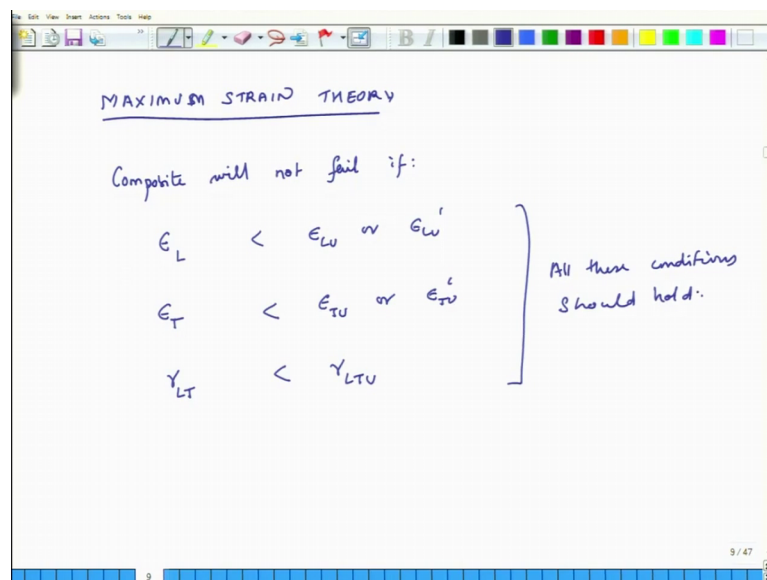 File Edit View Insert Actions Tools Help
MAXIMUM STRAIN THEORY
Composite will not fail if:
ϵ_L < ϵ_LU or ϵ_LU'
ϵ_T < ϵ_TU or ϵ_TU'
γ_LT < γ_LTU
All these conditions
should hold.
9 / 47
9